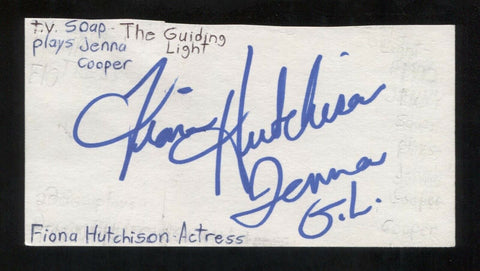 t.v. Soap - The Guiding
plays Jenna Light
Cooper
Fiona Hutchison
Jenna
G.L.
Fiona Hutchison-Actress